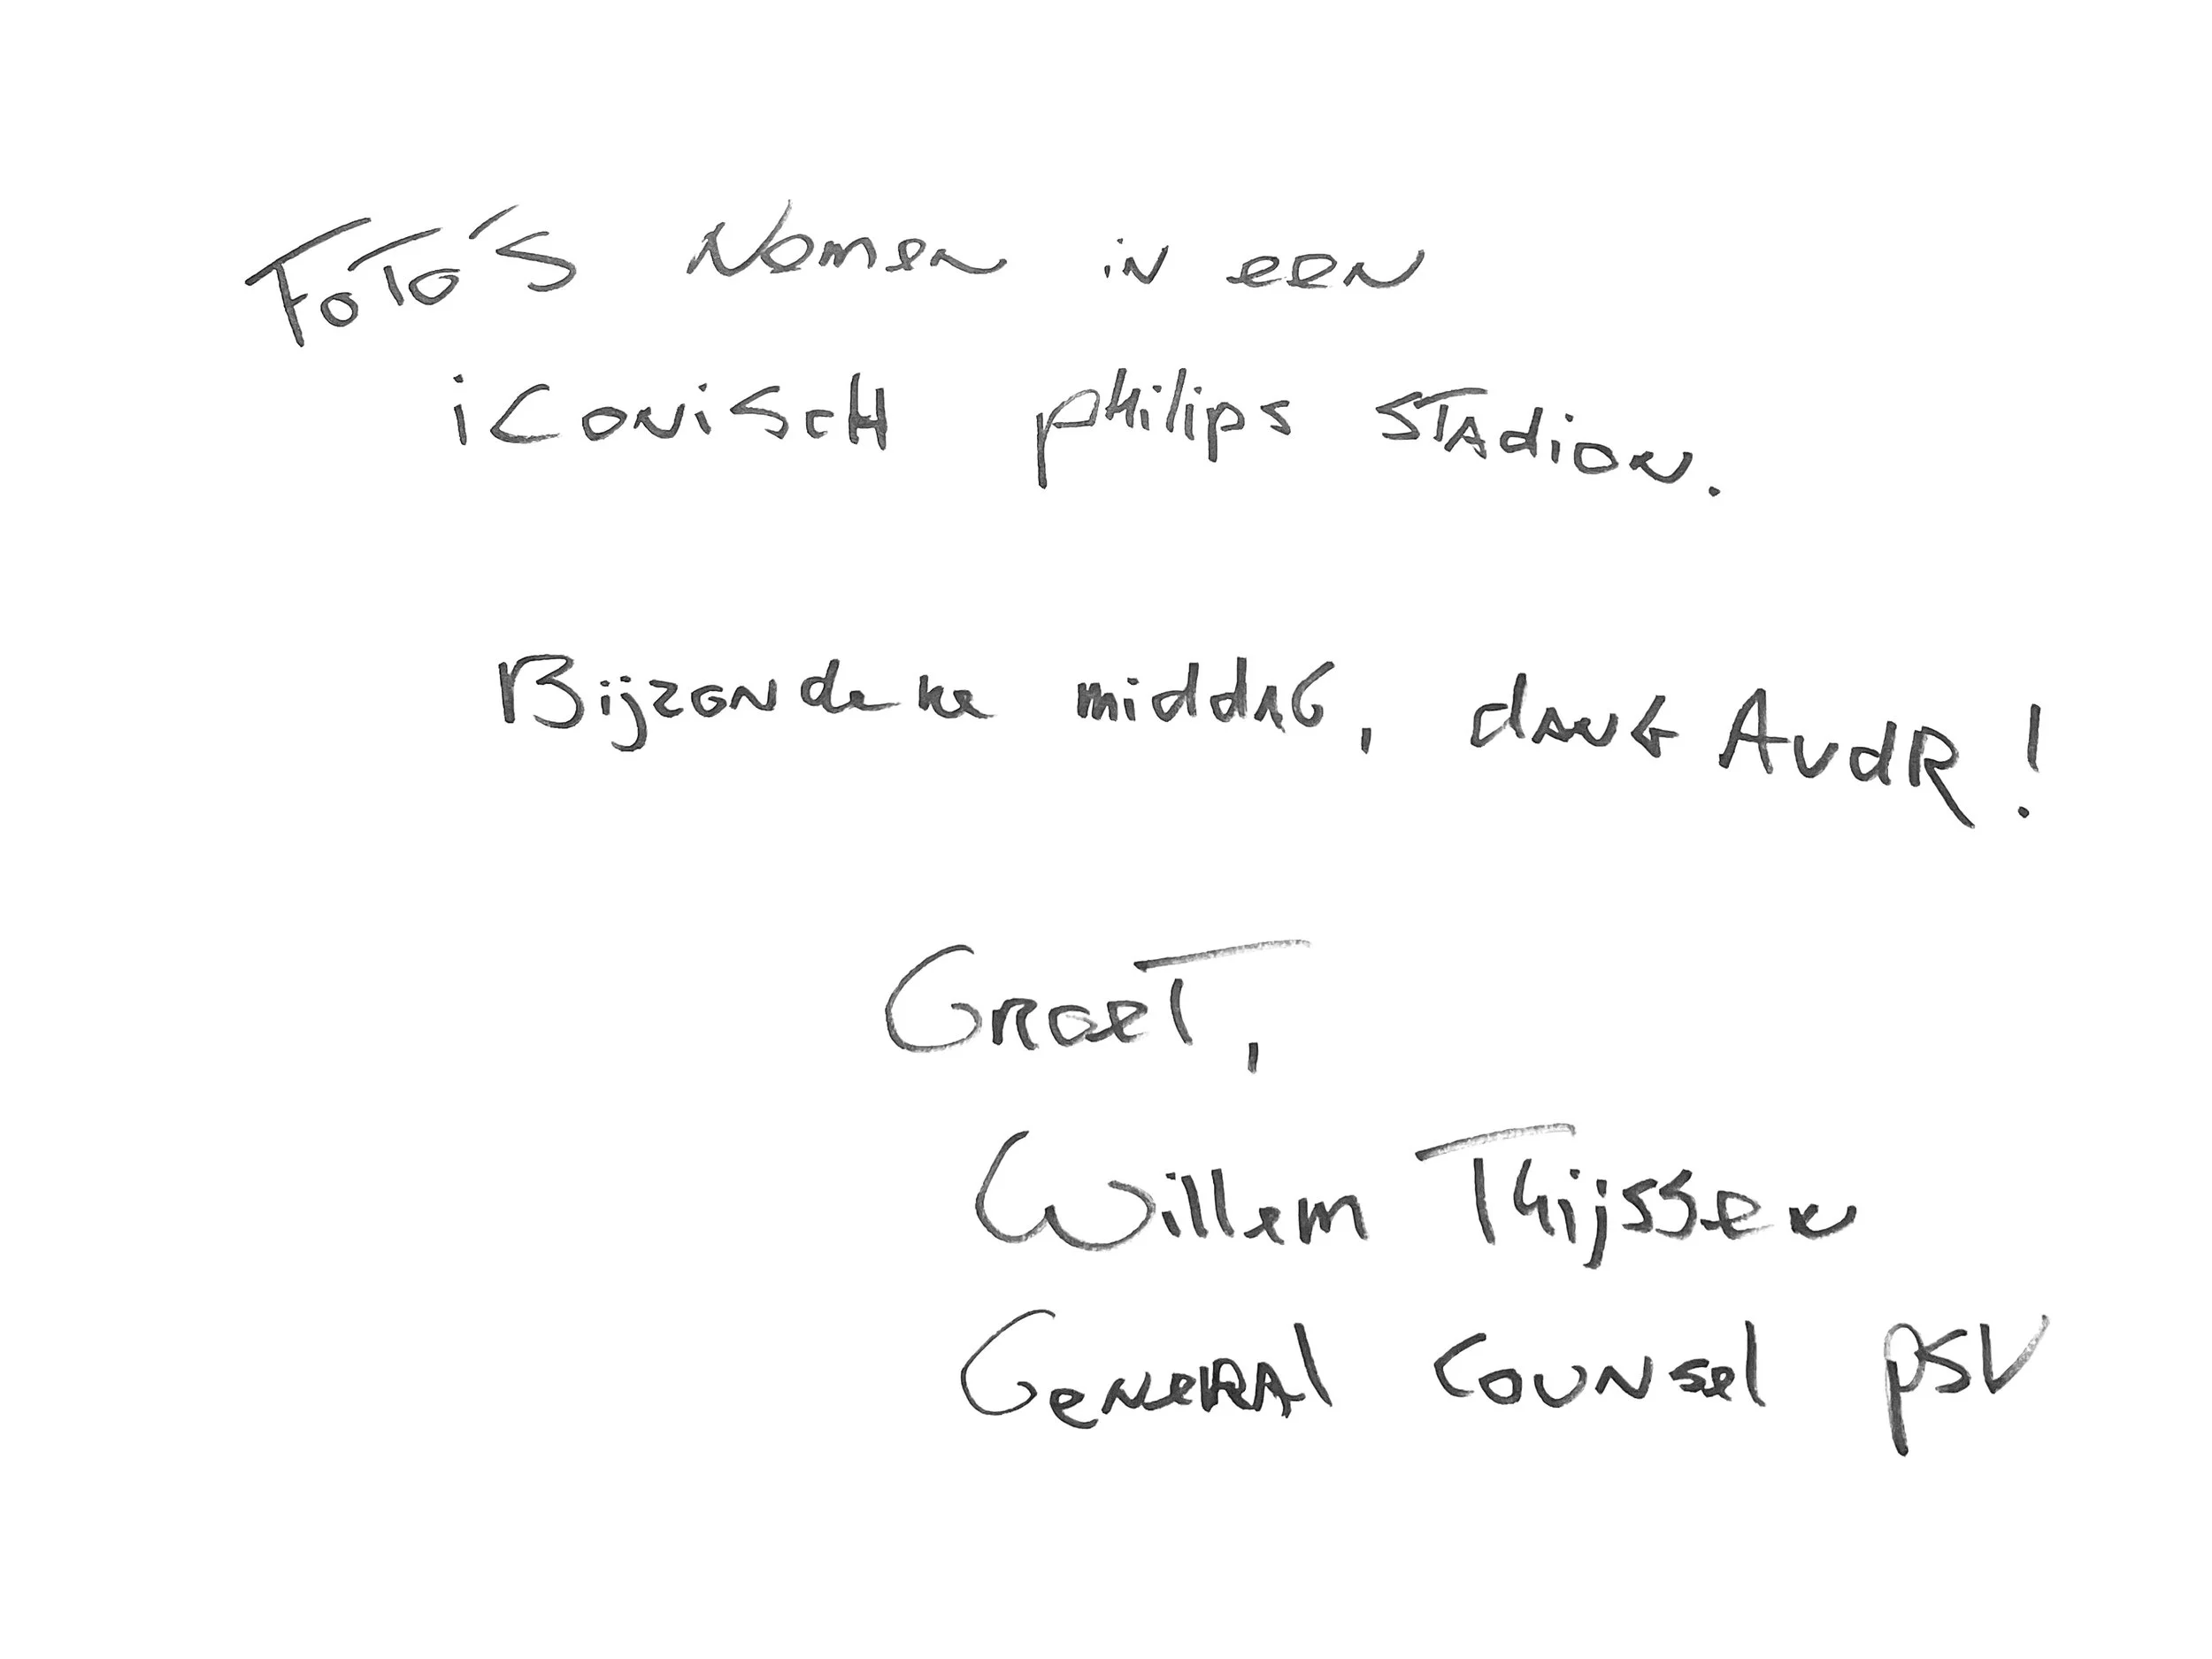 Foto's Nomen in een
iconisch Philips Stadion.
Bijzondere middag, dank AvdR!
Groet,
Willem Thijssen
General Counsel PSV